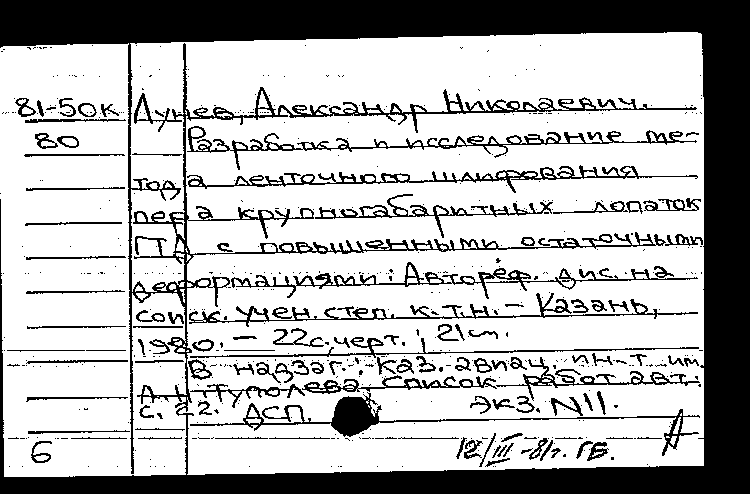 81-50к Лунев, Александр Николаевич.
80 Разработка и исследование ме-
тода ленточного шлифования
пера крупногабаритных лопаток
ГТД с повышенными остаточными
деформациями: Автореф. дис. на
соиск. учен. степ. к.т.н. - Казань,
1980. - 22с., черт.; 21см.
В надзаг.: Каз. авиац. ин-т им.
А.Н. Туполева. Список работ авт.:
с. 22. ДСП. Экз. N11.
6 12/III-81г. ГБ. А